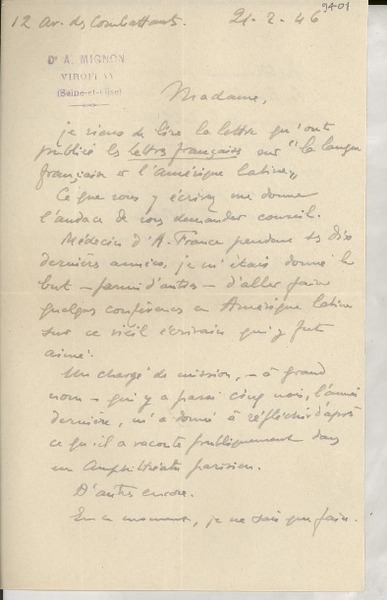 9401
12 av. des Combattants. 21-2-46
Dr A. MIGNON
VIROFLAY
(Seine-et-Oise)
Madame,
je viens de lire la lettre qu'ont
publié les lettres françaises sur "la langue
française et l'Amérique latine"
Ce que vous y écrivez me donne
l'audace de vous demander conseil.
Médecin d'A. France pendant ses dix
dernières années, je m'étais donné le
but – parmi d'autres – d'aller faire
quelques conférences en Amérique latine
sur ce vieil écrivain qui y fut
aimé.
Un chargé de mission, – à grand
nom – qui y a passé cinq mois, l'année
dernière, m'a donné à réfléchir d'après
ce qu'il a raconté publiquement dans
un amphithéâtre parisien.
D'autres encore.
En ce moment, je ne sais que faire.